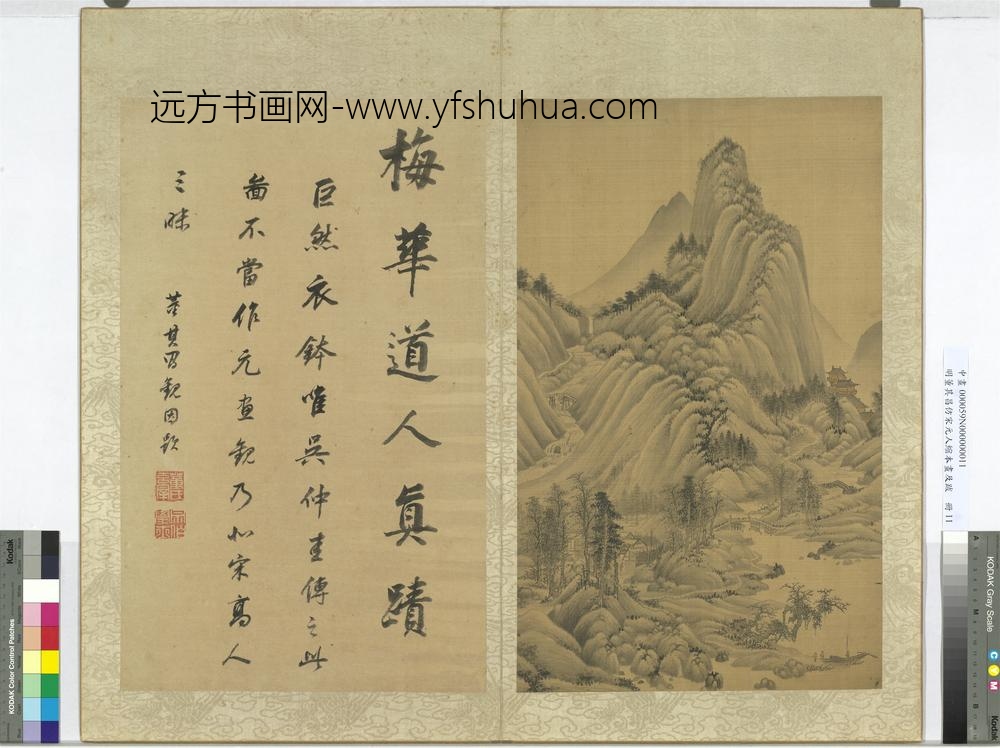 远方书画网-www.yfshuhua.com
梅華道人真蹟
巨然衣鉢唯吳仲圭傳之此
啚不當作元畫觀乃北宋高人
三昧
董其昌觀因題
中畫000059N000000011
明董其昌仿宋元人縮本畫及跋 冊 11
Kodak
KODAK Color Control Patches
KODAK Gray Scale
C
Y
M
Kodak
A
M
B